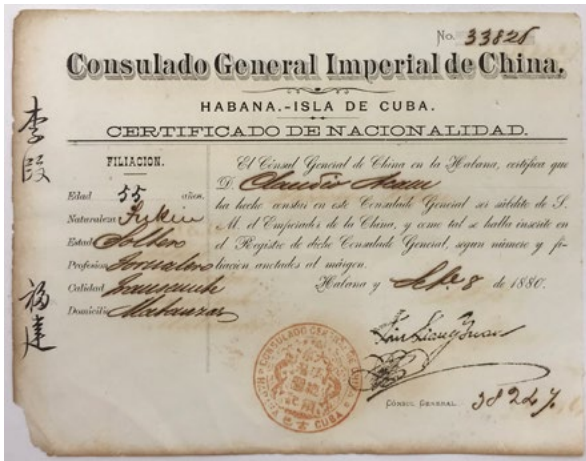 No. 33826
Consulado General Imperial de China,
HABANA.-ISLA DE CUBA.
CERTIFICADO DE NACIONALIDAD.
李
福建
FILIACION.
Edad 55 años.
Naturaleza
Estado Soltero
Profesion Jornalero
Calidad Transeunte
Domicilio Matanzas
El Cónsul General de China en la Habana, certifica que
D. Claudio
ha hecho constar en este Consulado General ser súbdito de S.
M. el Emperador de la China, y como tal se halla inscrito en
el Registro de dicho Consulado General, segun número y fi-
liacion anotados al márgen.
Habana y Sbe. 8 de 1880.
CONSULADO GENERAL
CUBA
CÓNSUL GENERAL.
38247